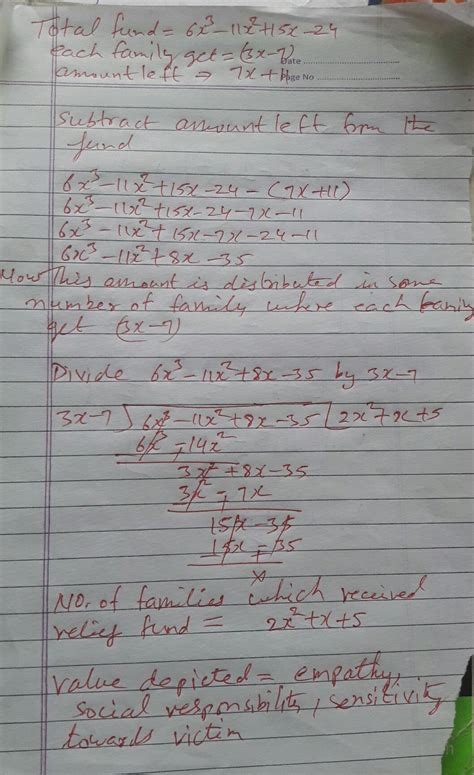 Total fund = 6x³-11x²+15x-24
each family get = (3x-7)
Date
amount left ⇒ 7x+11
Page No
Subtract amount left from the
fund
6x³-11x²+15x-24-(7x+11)
6x³-11x²+15x-24-7x-11
6x³-11x²+15x-7x-24-11
6x³-11x²+8x-35
Now This amount is distributed in some
number of family where each family
get (3x-7)
Divide 6x³-11x²+8x-35 by 3x-7
3x-7 ) 6x³-11x²+8x-35 ( 2x²+x+5
6x³-14x²
3x²+8x-35
3x²-7x
15x-35
15x-35
x
NO. of families which received
relief fund = 2x²+x+5
value depicted = empathy,
social responsibility, sensitivity
towards victim